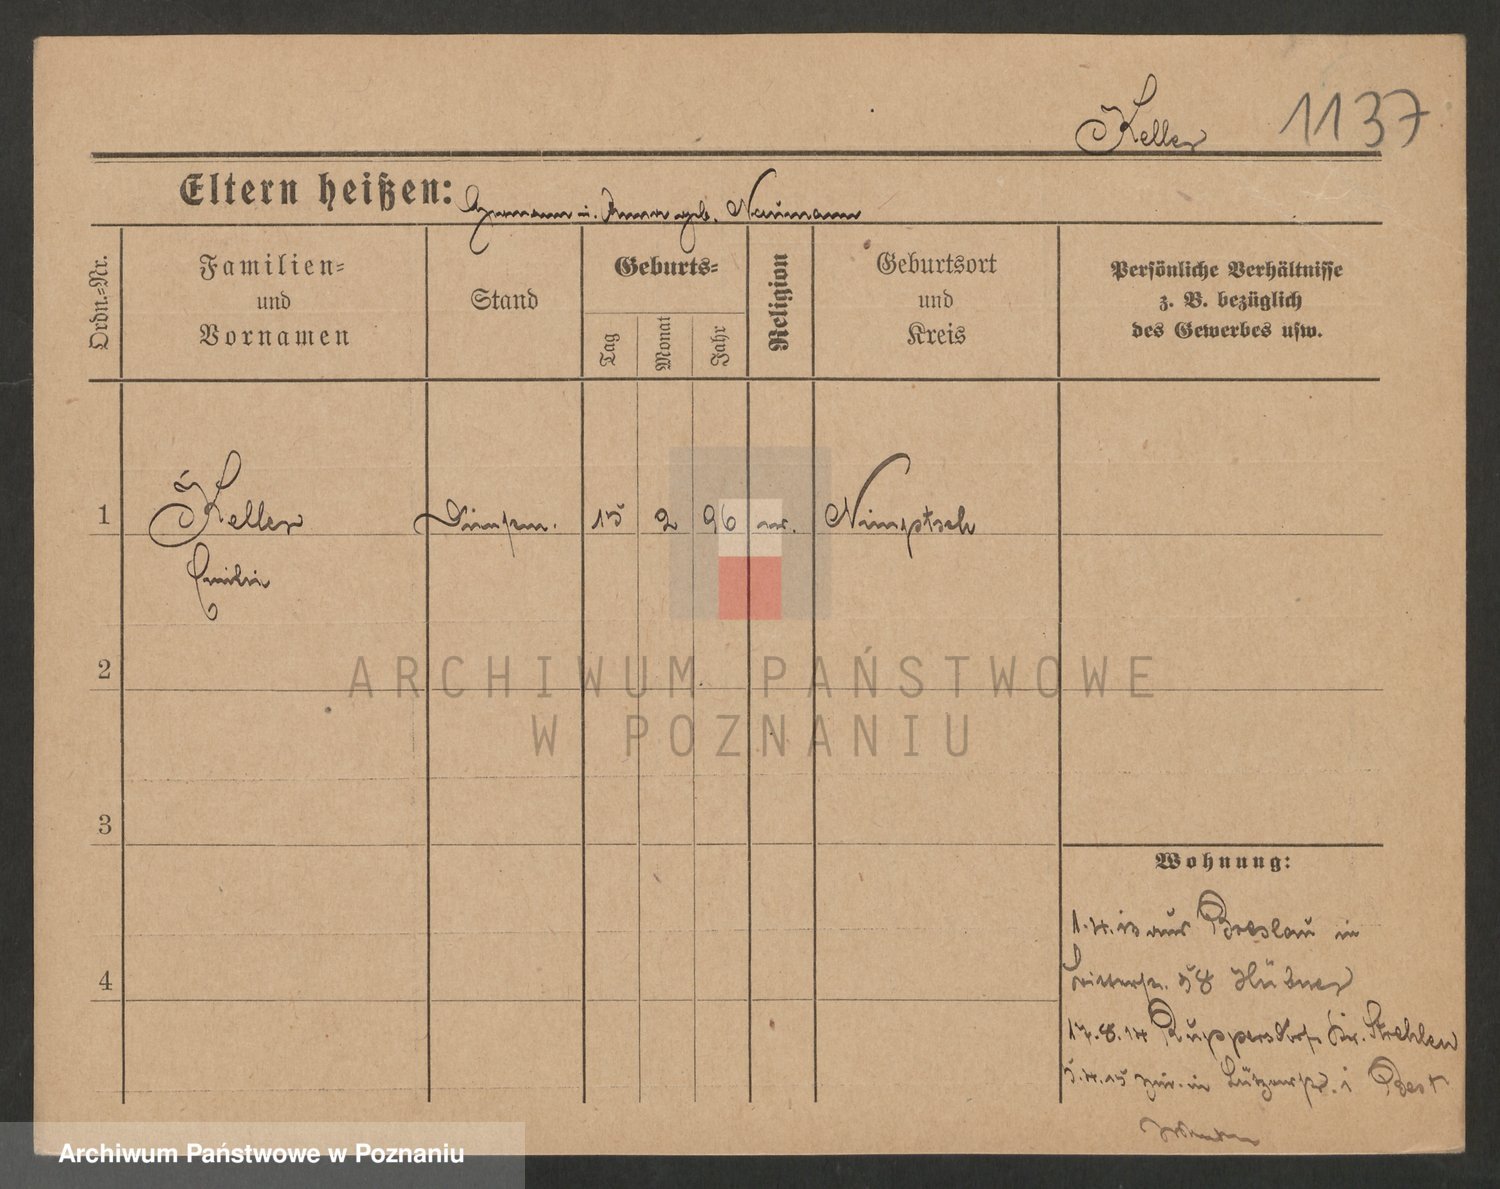 Keller 1137
Eltern heißen: Hermann u. Anna geb. Neumann
Ordn.=Nr.
Familien=
und
Vornamen
Stand
Geburts=
Tag
Monat
Jahr
Religion
Geburtsort
und
Kreis
Persönliche Verhältnisse
z. B. bezüglich
des Gewerbes usw.
1 Keller 15 2 96 Nimptsch
Emilie
2
ARCHIWUM PAŃSTWOWE
W POZNANIU
3
Wohnung:
aus Breslau in
Ritterstr. 38 Hübner
4
17.8.14 Ruppersdorf Kr. Strehlen
5.4.15 zur. in Lützowstr. 1
Archiwum Państwowe w Poznaniu